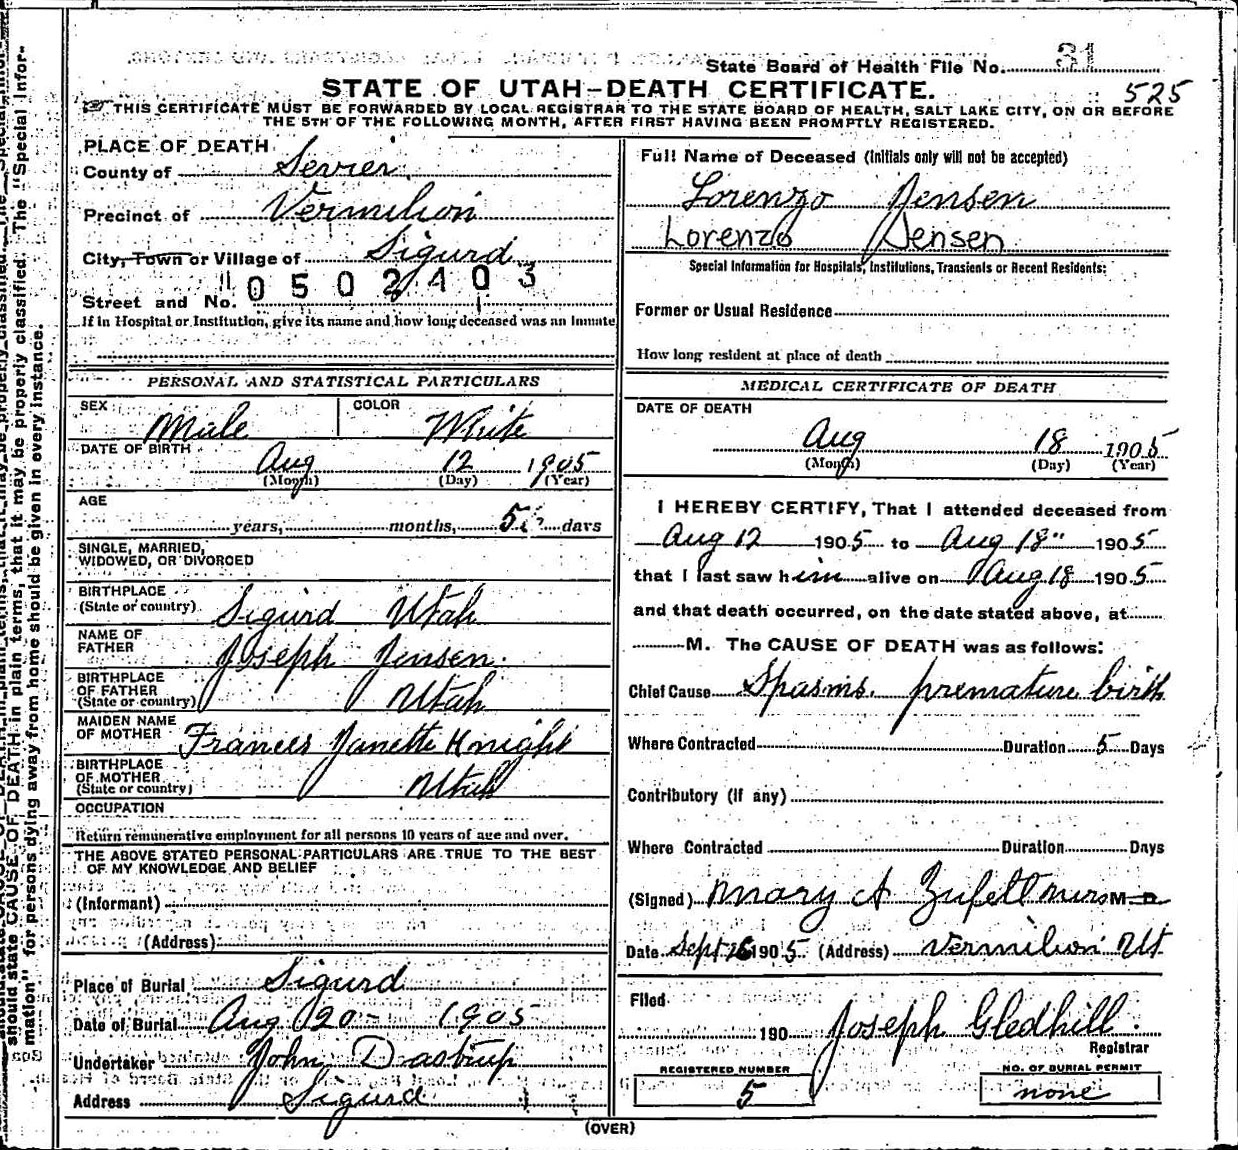 State Board of Health File No. 31
525
STATE OF UTAH—DEATH CERTIFICATE.
THIS CERTIFICATE MUST BE FORWARDED BY LOCAL REGISTRAR TO THE STATE BOARD OF HEALTH, SALT LAKE CITY, ON OR BEFORE
THE 5TH OF THE FOLLOWING MONTH, AFTER FIRST HAVING BEEN PROMPTLY REGISTERED.
PLACE OF DEATH
County of Sevier.
Precinct of Vermilion
City, Town or Village of Sigurd
Street and No. 0502403
If in Hospital or Institution, give its name and how long deceased was an Inmate
PERSONAL AND STATISTICAL PARTICULARS
SEX Male COLOR White
DATE OF BIRTH Aug 12 1905
(Month) (Day) (Year)
AGE
years, months, days
SINGLE, MARRIED,
WIDOWED, OR DIVORCED
BIRTHPLACE
(State or country) Sigurd Utah
NAME OF
FATHER Joseph Jensen.
BIRTHPLACE
OF FATHER
(State or country) Utah
MAIDEN NAME
OF MOTHER Frances Janette Knight
BIRTHPLACE
OF MOTHER
(State or country) Utah
OCCUPATION
Return remunerative employment for all persons 10 years of age and over.
THE ABOVE STATED PERSONAL PARTICULARS ARE TRUE TO THE BEST
OF MY KNOWLEDGE AND BELIEF
(Informant)
(Address)
Place of Burial Sigurd
Date of Burial Aug 20 1905
Undertaker John Dastrup
Address Sigurd
Full Name of Deceased (Initials only will not be accepted)
Lorenzo Jensen
Lorenzo Jensen
Special Information for Hospitals, Institutions, Transients or Recent Residents:
Former or Usual Residence
How long resident at place of death
MEDICAL CERTIFICATE OF DEATH
DATE OF DEATH
Aug 18 1905
(Month) (Day) (Year)
I HEREBY CERTIFY, That I attended deceased from
Aug 12 1905 to Aug 18" 1905
that I last saw him alive on Aug 18 1905
and that death occurred, on the date stated above, at
M. The CAUSE OF DEATH was as follows:
Chief Cause Spasms. premature birth
Where Contracted Duration 5 Days
Contributory (if any)
Where Contracted Duration Days
(Signed) Mary A Zufelt nurs M D
Date Sept 1905 (Address) Vermilion Ut.
Filed
190 Joseph Gledhill.
Registrar
REGISTERED NUMBER
5
NO. OF BURIAL PERMIT
none
(OVER)
should state CAUSE OF DEATH in plain terms, that it may be properly classified. The "Special Infor-
mation" for persons dying away from home should be given in every instance.